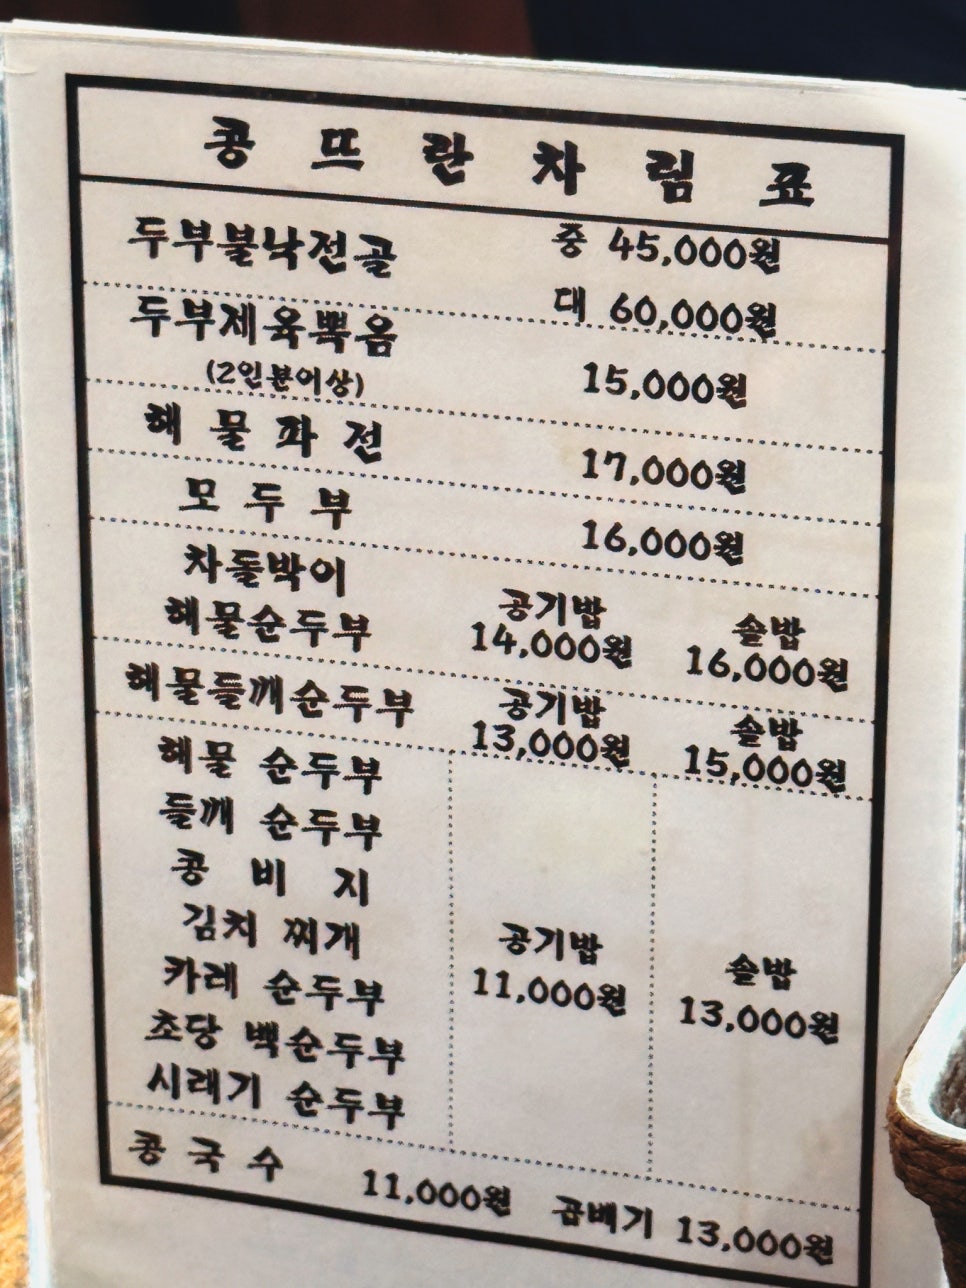 콩 뜨 란 차 림 표
두부불낙전골 중 45,000원
대 60,000원
두부제육뽁음
(2인분이상) 15,000원
해 물 파 전 17,000원
모 두 부 16,000원
차돌박이
해물순두부 공기밥 14,000원 솥밥 16,000원
해물들깨순두부 공기밥 13,000원 솥밥 15,000원
해물 순두부
들깨 순두부
콩 비 지
김치 찌개 공기밥 솥밥
카레 순두부 11,000원 13,000원
초당 백순두부
시래기 순두부
콩 국 수 11,000원 곱배기 13,000원